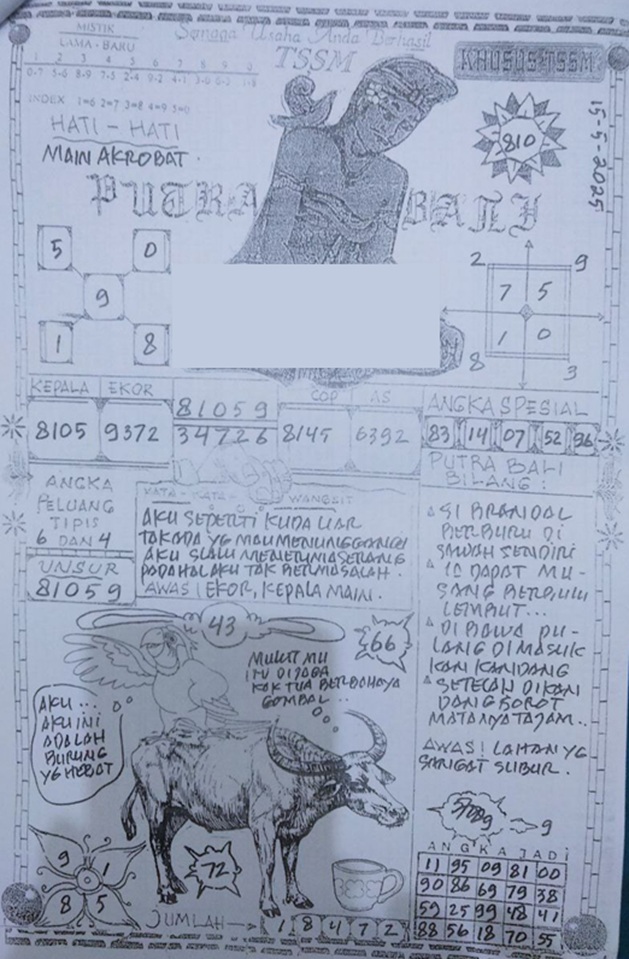 MISTIK
LAMA - BARU
1 2 3 4 5 6 7 8 9 0
0-7 5-6 8-9 7-5 2-4 9-2 4-1
INDEX 1=6 2=7 3=8 4=9 5=0
Semoga Usaha Anda Berhasil
TSSM
KHUSUS TSSM
15-5-2025
810
HATI - HATI
MAIN AKROBAT.
PUTRA BALI
5 0
9
1 8
2 9
7 5
1 0
8 3
KEPALA EKOR
8105 9372
81059
34726
COP AS
8145 6392
ANGKA SPESIAL
83 14 07 52 96
ANGKA
PELUANG
TIPIS
6 DAN 4
UNSUR
81059
KATA - KATA WANGSIT
AKU SEPERTI KUDA LIAR
TAKADA YG MAU MENUNGGANGI
AKU SLALU MENERIMA SERANG
PADAHAL AKU TAK BERMASALAH.
AWAS! EKOR, KEPALA MAIN.
PUTRA BALI
BILANG:
SI BRANDAL
BERBURU DI
SAWAH SENDIRI
DAPAT MU-
SANG BERBULU
LEMBUT...
DI BAWA PU-
LANG DI MASUK
KAN KANDANG
SETELAH DI KAN
DANG SOROT
MATANYA TAJAM..
AWAS! LAHAN YG
SANGAT SUBUR.
43
66
MULUT MU
ITU DI JAGA
KAK TUA BERBAHAYA
GOMBAL...
AKU...
AKU INI
ADALAH
BURUNG
YG HEBAT
9 1
8 5
72
JUMLAH → 1 8 4 7 2
9
ANGKA JADI
11 95 09 81 00
90 86 69 79 38
59 25 99 48 41
88 56 18 70 55